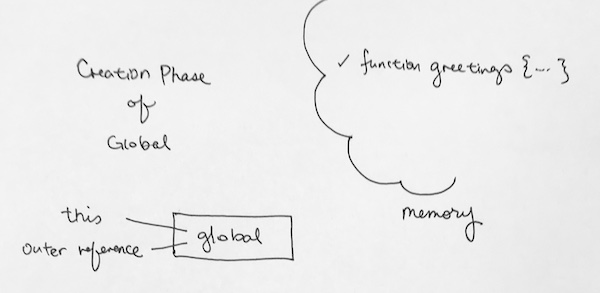 Creation Phase
of
Global
✓ function greetings {...}
memory
this
outer reference
global